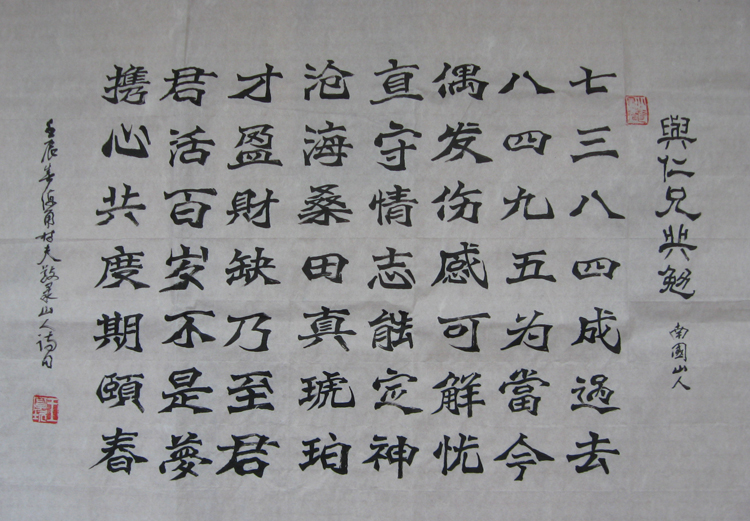 與仁兄共勉
南國山人
七三八四成過去
八四九五为當今
偶发伤感可解忧
直守情志能定神
沧海桑田真琥珀
才盈財缺乃至君
君活百岁不是夢
携心共度期頤春
壬辰年海角村夫敬录山人诗句